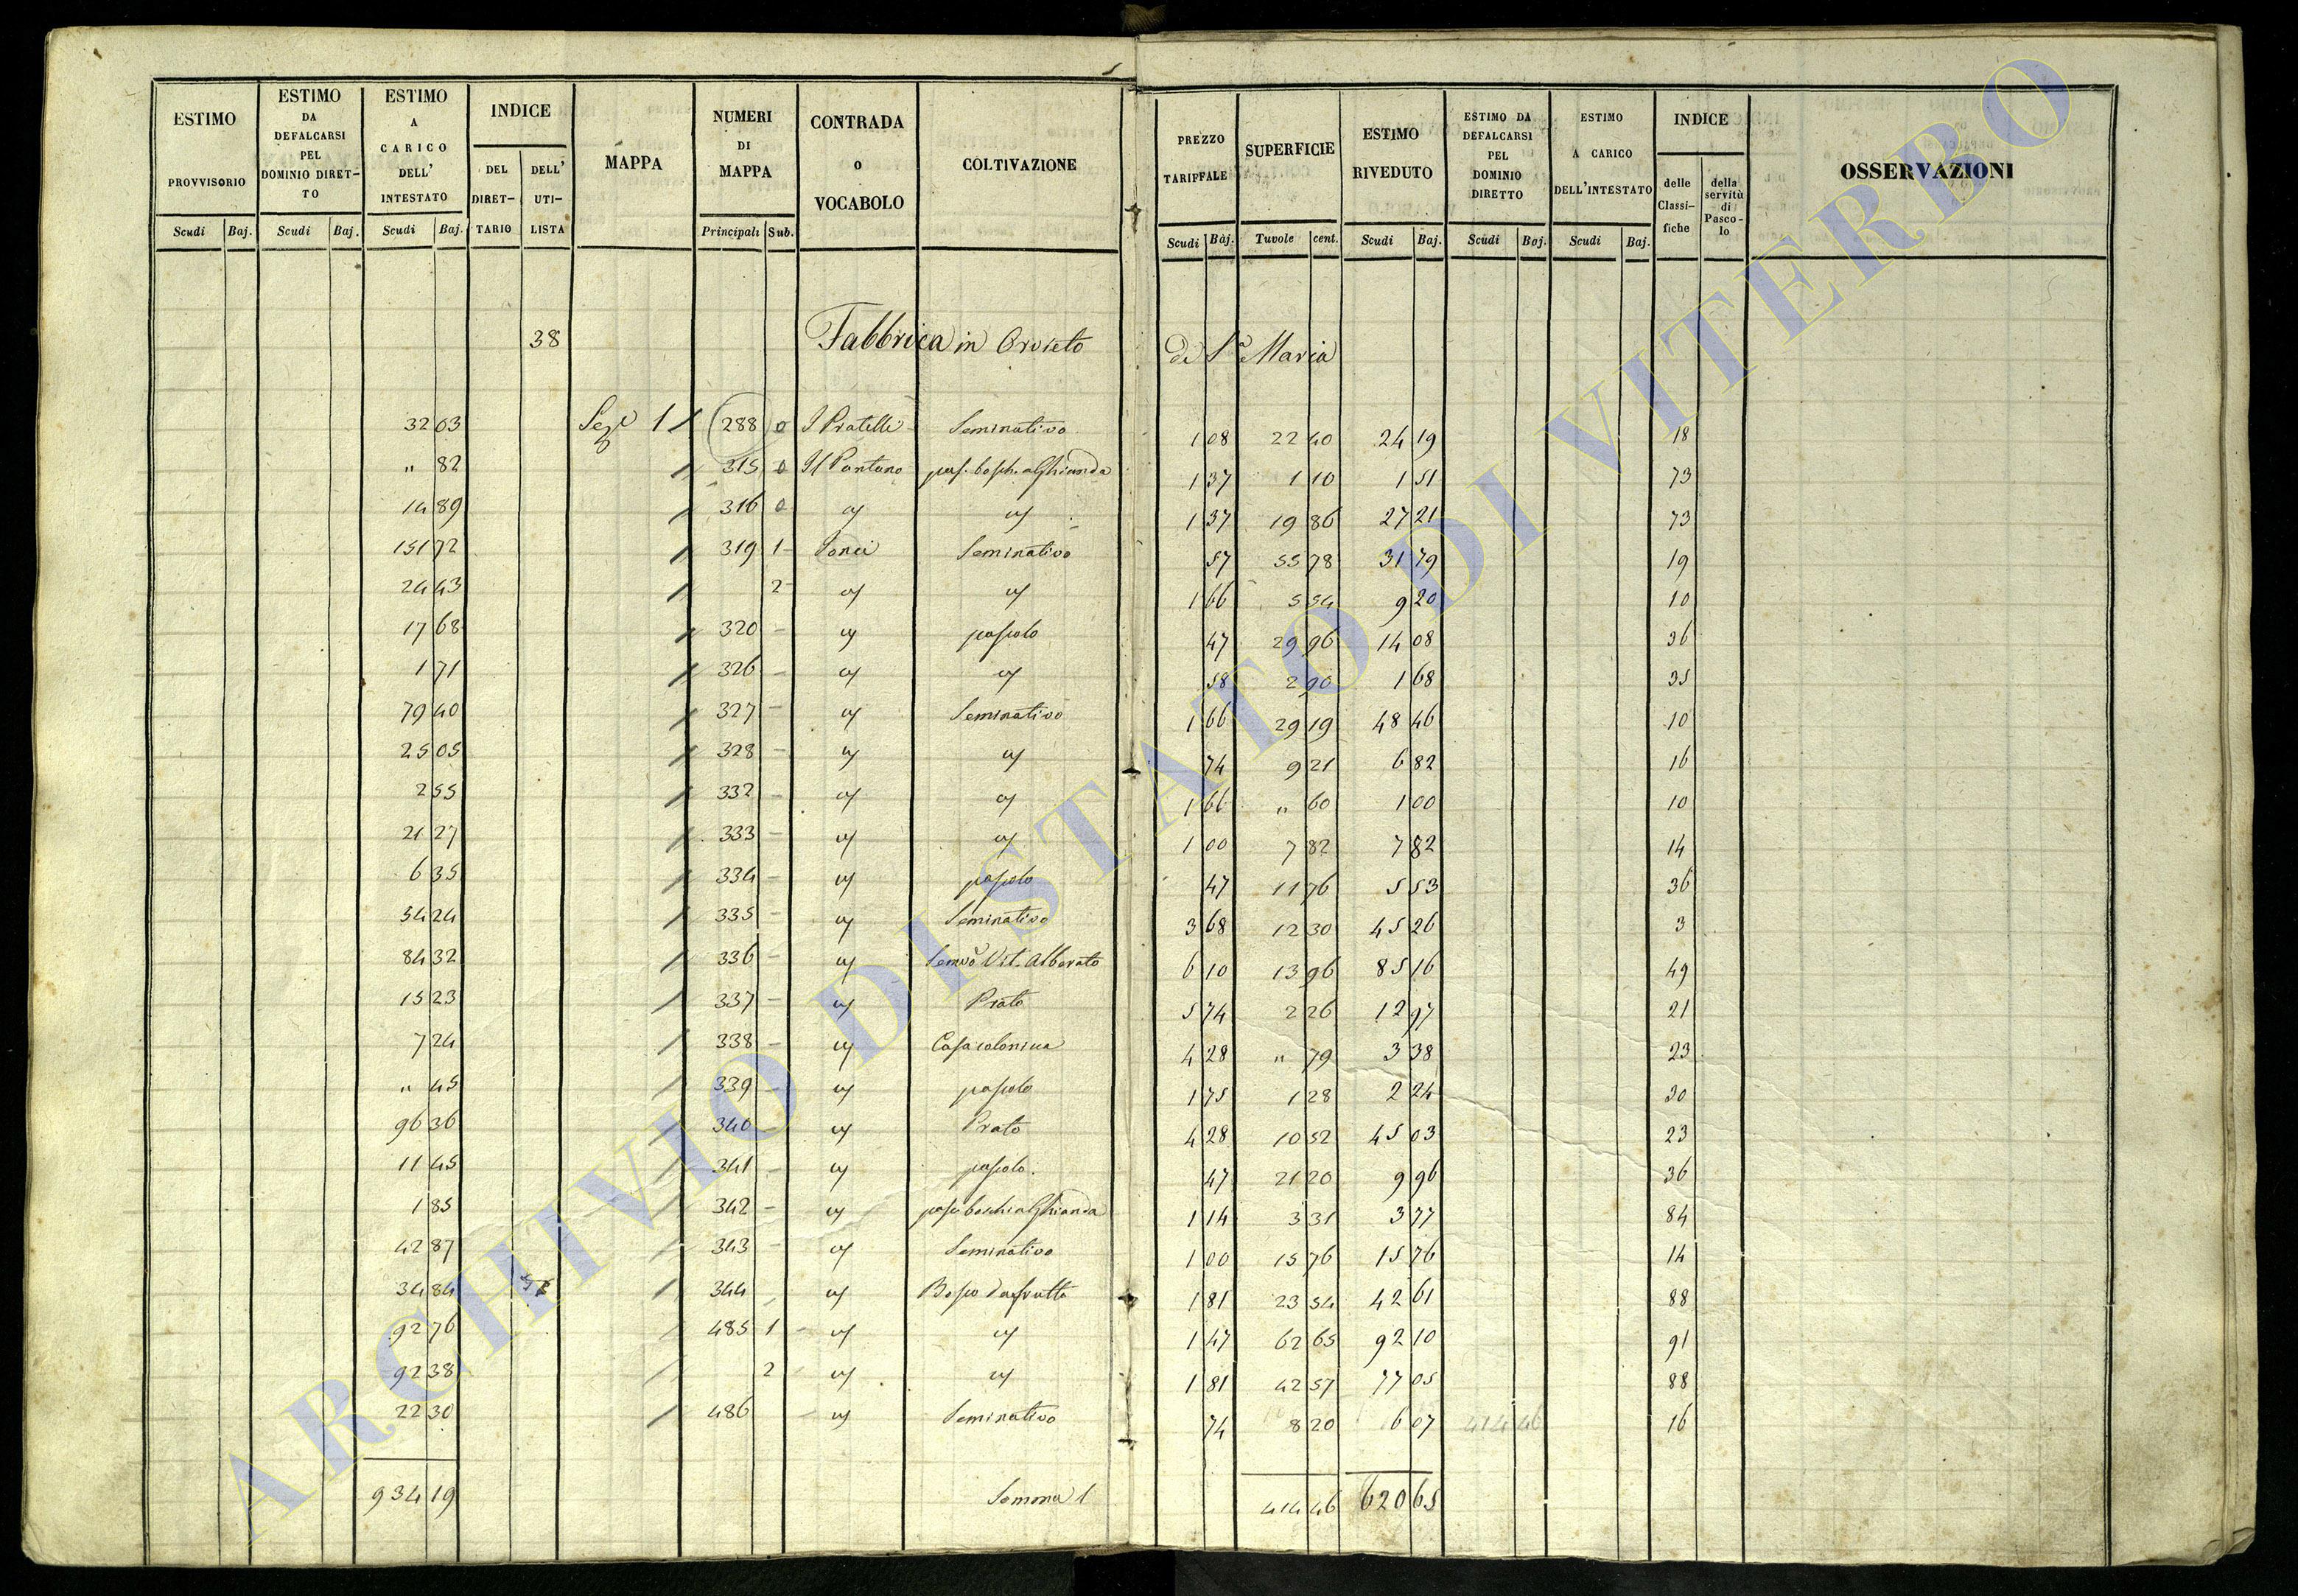 ESTIMO PROVVISORIO Scudi Baj.
ESTIMO DA DEFALCARSI PEL DOMINIO DIRET-TO Scudi Baj.
ESTIMO A CARICO DELL' INTESTATO Scudi Baj.
INDICE DEL DIRET-TARIO DELL' UTI-LISTA
MAPPA
NUMERI DI MAPPA Principali Sub.
CONTRADA o VOCABOLO
COLTIVAZIONE
PREZZO TARIFFALE Scudi Baj.
SUPERFICIE Tuvole cent.
ESTIMO RIVEDUTO Scudi Baj.
ESTIMO DA DEFALCARSI PEL DOMINIO DIRETTO Scudi Boj.
ESTIMO A CARICO DELL'INTESTATO Scudi Baj.
INDICE delle Classi-fiche della servitù di Pasco-lo
OSSERVAZIONI
38 Fabbrica in Orvieto di S.a Maria
32 03 Sez.e 1 288 0 I Pratelli Seminativo 1 08 22 40 24 19 18
" 82 315 0 Il Pantano pas. bosch. a Ghianda 1 37 1 10 1 51 73
14 89 316 0 " " 1 37 19 86 27 21 73
151 72 319 1 Seminativo 57 55 78 31 79 19
24 43 2 " " 1 66 5 54 9 20 10
17 68 320 - " pascolo 47 29 96 14 08 36
1 71 326 - " " 58 2 90 1 68 35
79 40 327 - " Seminativo 1 66 29 19 48 46 10
25 05 328 - " " 74 9 21 6 82 16
2 55 332 - " " 1 66 " 60 1 00 10
21 27 333 - " " 1 00 7 82 7 82 14
6 35 334 - " pascolo 47 11 76 5 53 36
54 24 335 - " Seminativo 3 68 12 30 45 26 3
84 32 336 - " Semvo Vit. Alberato 6 10 13 96 85 16 49
15 23 337 - " Prato 5 74 2 26 12 97 21
7 24 338 - " Casa colonica 4 28 " 79 3 38 23
" 45 339 - " pascolo 1 75 1 28 2 24 30
96 36 340 - " Prato 4 28 10 52 45 03 23
11 45 341 - " pascolo 47 21 20 9 96 36
1 85 342 - " pas. boschi a Ghianda 1 14 3 31 3 77 84
42 87 343 - " Seminativo 1 00 15 76 15 76 14
34 84 344 - " Bosco da frutto 1 81 23 54 42 61 88
92 76 485 1 " " 1 47 62 65 92 10 91
92 38 2 " " 1 81 42 57 77 05 88
22 30 486 " Seminativo 74 8 20 6 07 414 46 16
934 19 Somma 1 414 46 620 65
ARCHIVIO DI STATO DI VITERBO